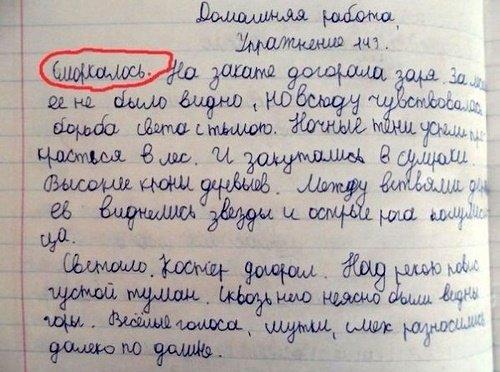 Домашняя работа,
Упражнение 143.
Сморкалось. На закате догорала заря. За
ее не было видно, но всюду чувствовалась
борьба света с тьмою. Ночные тени успели
красться в лес. И закутались в сумраки.
Высокие крони деревьев. Между ветвями
ев виднелись звезды и острые рога
ца.
Светало. Костёр догорал. Над рекою повис
густой туман. Сквозь него неясно были видны
горы. Весёлые голоса, шутки, смех разносились
далеко по долине.